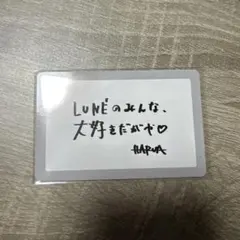 LUNÉのみんな、
大好きだがや♡
HARUA